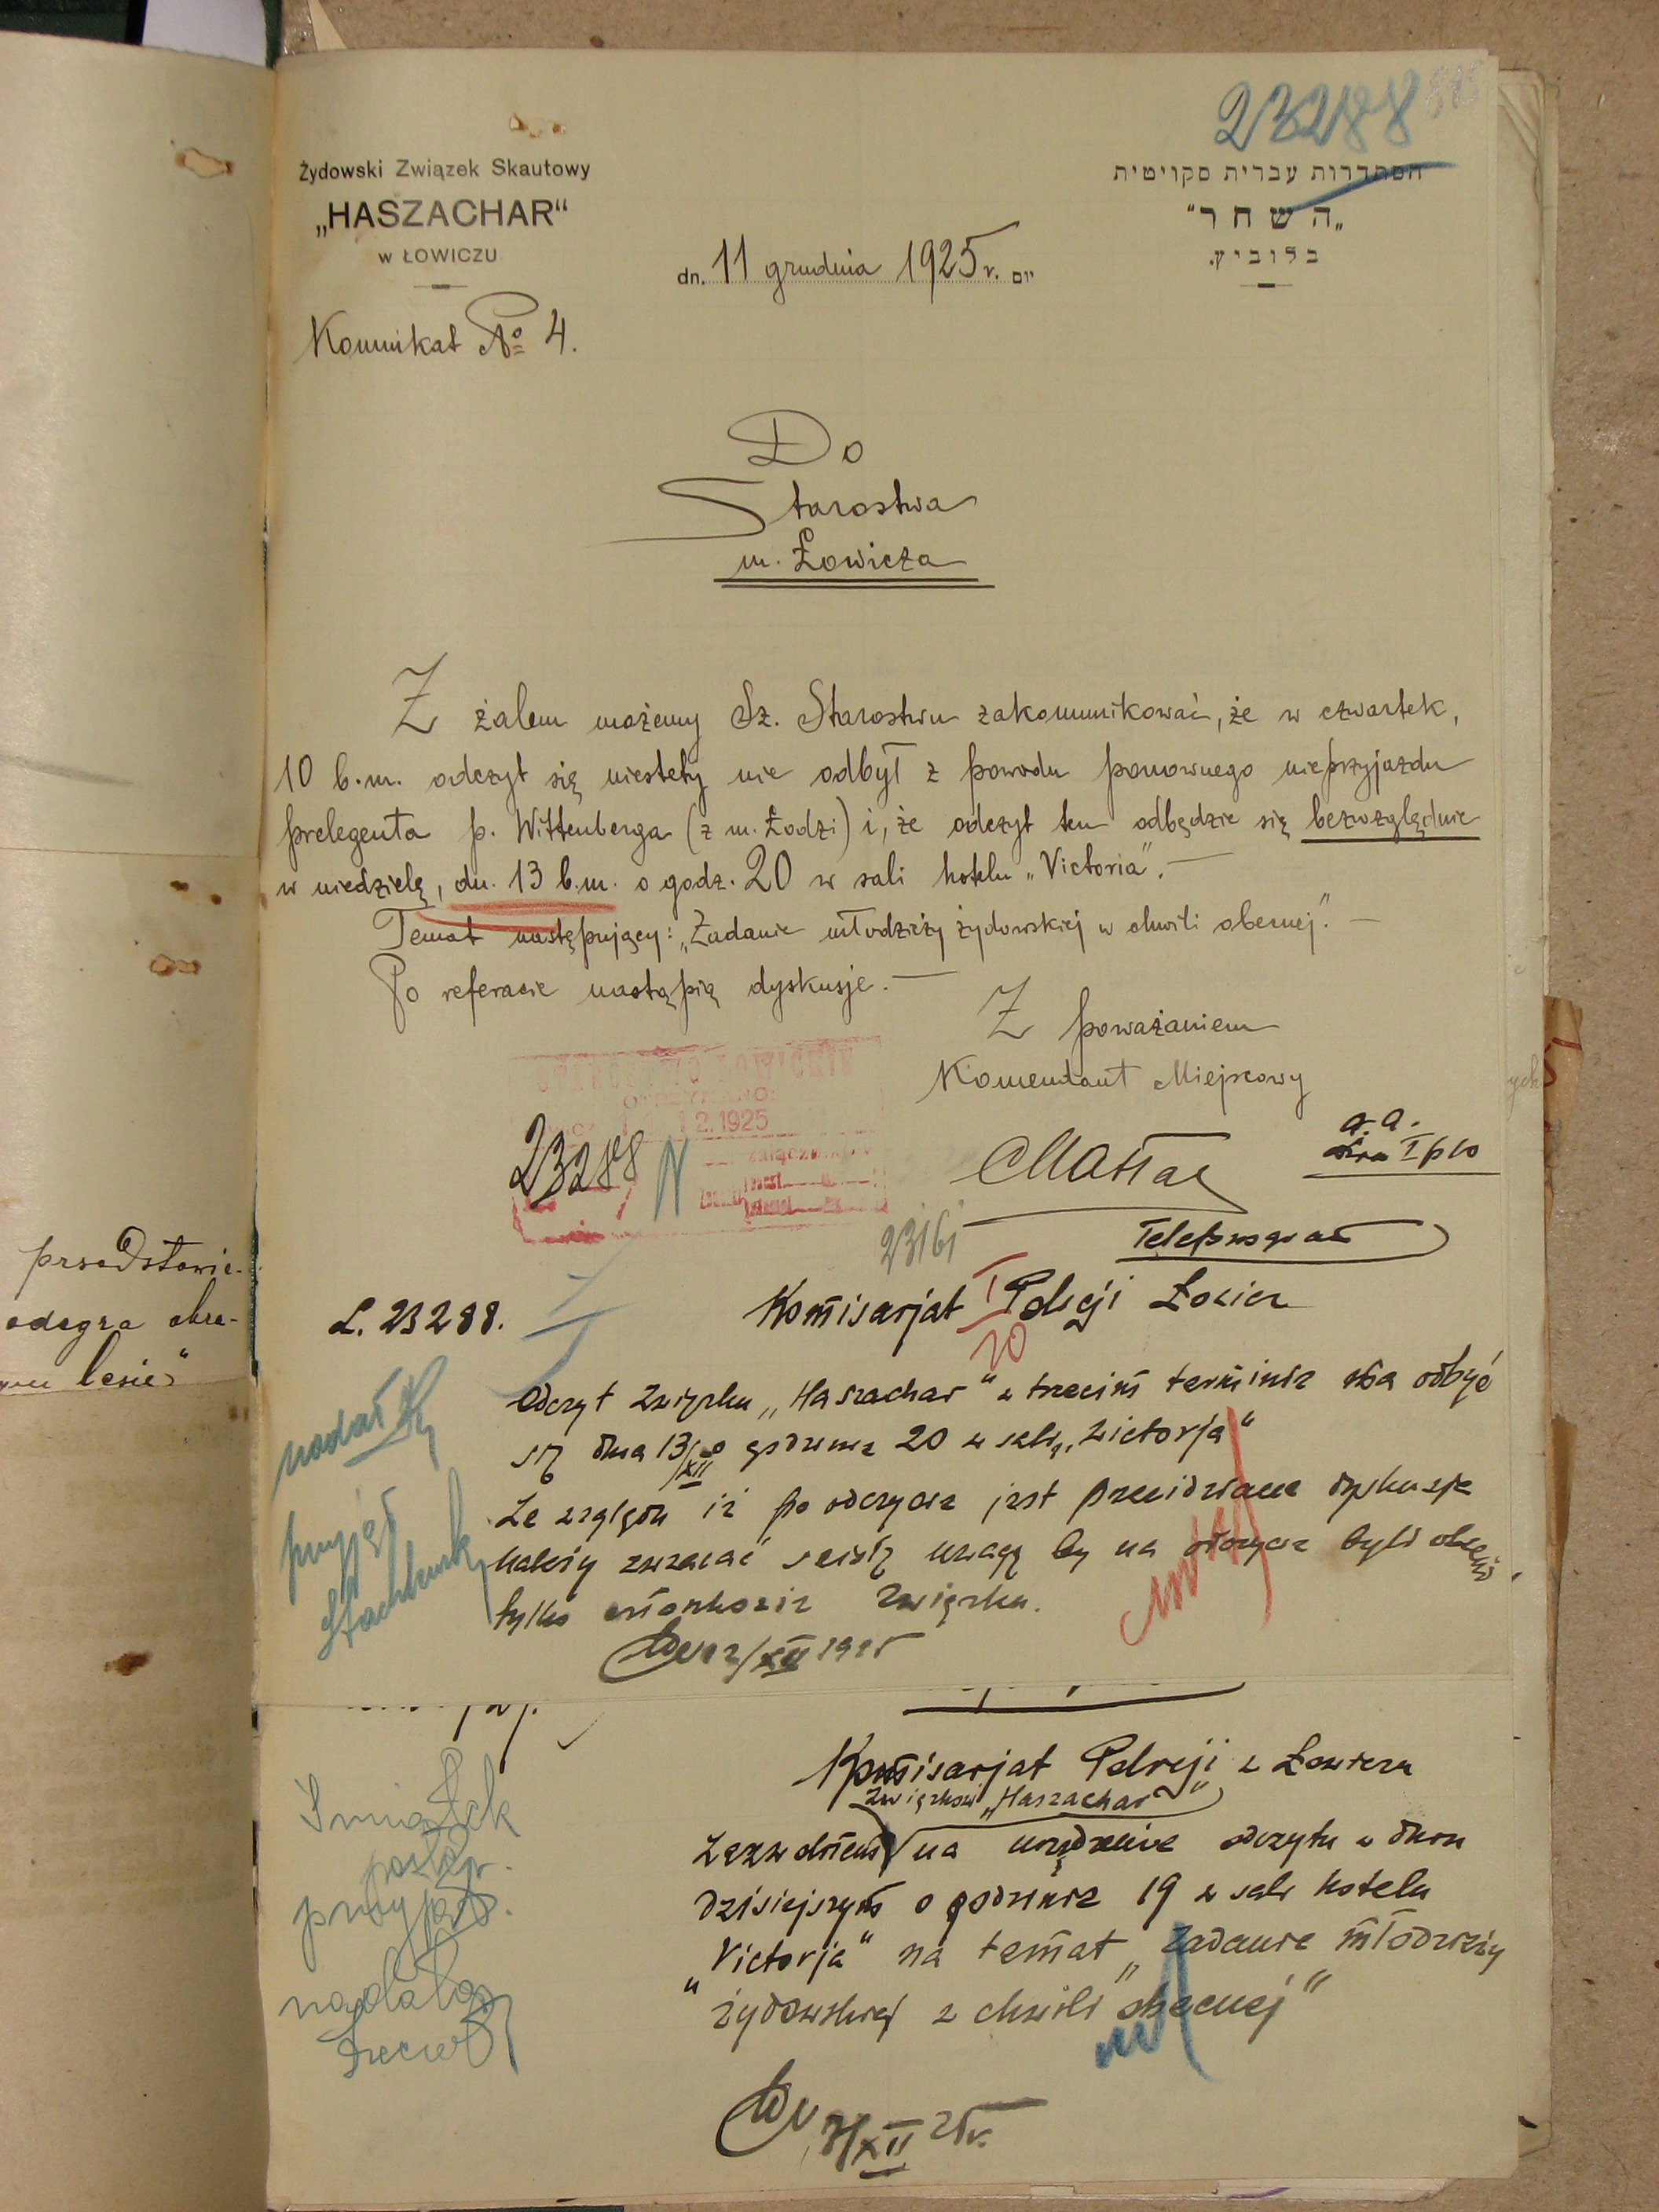 23288
Żydowski Związek Skautowy
„HASZACHAR“
w ŁOWICZU
הסתדרות עברית סקויטית
„השחר“
בלוביץ.
dn. 11 grudnia 1925 r. יום
Komunikat № 4.
Do
Starostwa
m. Łowicza
Z żalem możemy Sz. Starostwu zakomunikować, że w czwartek,
10 b.m. odczyt się niestety nie odbył z powodu ponownego nieprzyjazdu
prelegenta p. Wittenberga (z m. Łodzi) i, że odczyt ten odbędzie się bezwzględnie
w niedzielę, dn. 13 b.m. o godz. 20 w sali hotelu „Victoria”. —
Temat następujący: „Zadanie młodzieży żydowskiej w chwili obecnej”. —
Po referacie nastąpią dyskusje. —
Z poważaniem
Komendant Miejscowy
a.a.
12.1925
23288
23161
Telefonogram
L. 23288.
Komisarjat Policji Łowicz
I
20
Odczyt Związku „Haszachar” w trzecim terminie ma odbyć
się dnia 13/XII o godzinie 20 w sali „Victorja”
Ze względu iż po odczycie jest przewidziane dyskusje
należy zwracać ścisłą uwagę by na odczycie byli obecni
tylko członkowie Związku.
12/XII 1925
nadał
przyjął
przedstawie-
odegra
lesie”
Komisarjat Policji w Łowiczu
Związkowi „Haszachar”
Zezwoliłem na urządzenie odczytu w dniu
dzisiejszym o godzinie 19 w sali hotelu
„Victorja” na temat „Zadanie młodzieży
żydowskiej w chwili obecnej”
XII 25 r.
przyjął
nadała